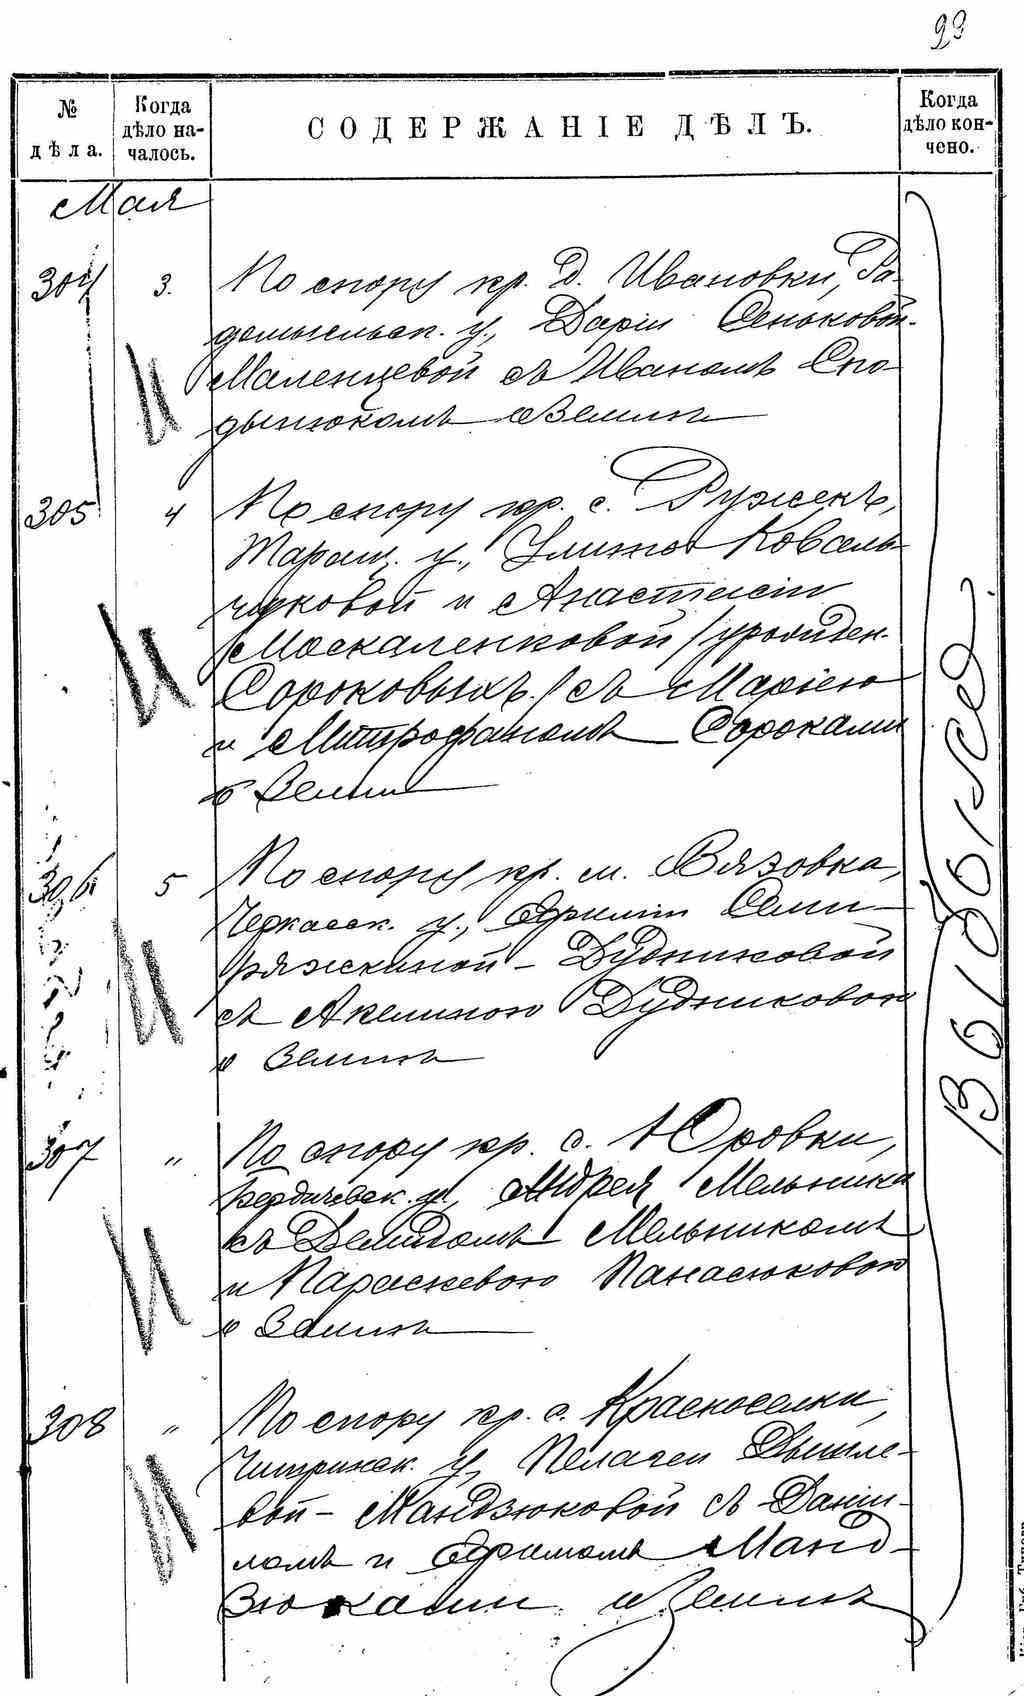 99
№ дѣла.
Когда дѣло началось.
СОДЕРЖАНІЕ ДѢЛЪ.
Когда дѣло кончено.
Мая
304 3. По спору кр. д. Ивановки, Ра-
домысльск. у., Даріи Сеньковой-
Маленцевой съ Иваномъ Спо-
дынюкомъ о землѣ
305 4 По спору кр. с. Ружекъ,
Таращ. у., Улиты Коваль-
чуковой и Анастасіи
Москаленковой /урожден.
Сороковыхъ/ съ Маріею
и Митрофаномъ Сороками
о земли
306 5 По спору кр. м. Вязовка,
Черкасск. у., Ефиміи Семи-
ряжкиной - Дудниковой
съ Акелиною Дудниковою
о землѣ
307 " По спору кр. с. Юровки,
Бердичевск. у., Андрея Мельника
съ Демидомъ Мельникомъ
и Параскевою Панасюковою
о землѣ
308 " По спору кр. с. Красноселки,
Чигринск. у., Пелагеи Дышле-
вой - Мандзюковой съ Дани-
ломъ и Ефимомъ Манд-
зюками о землѣ